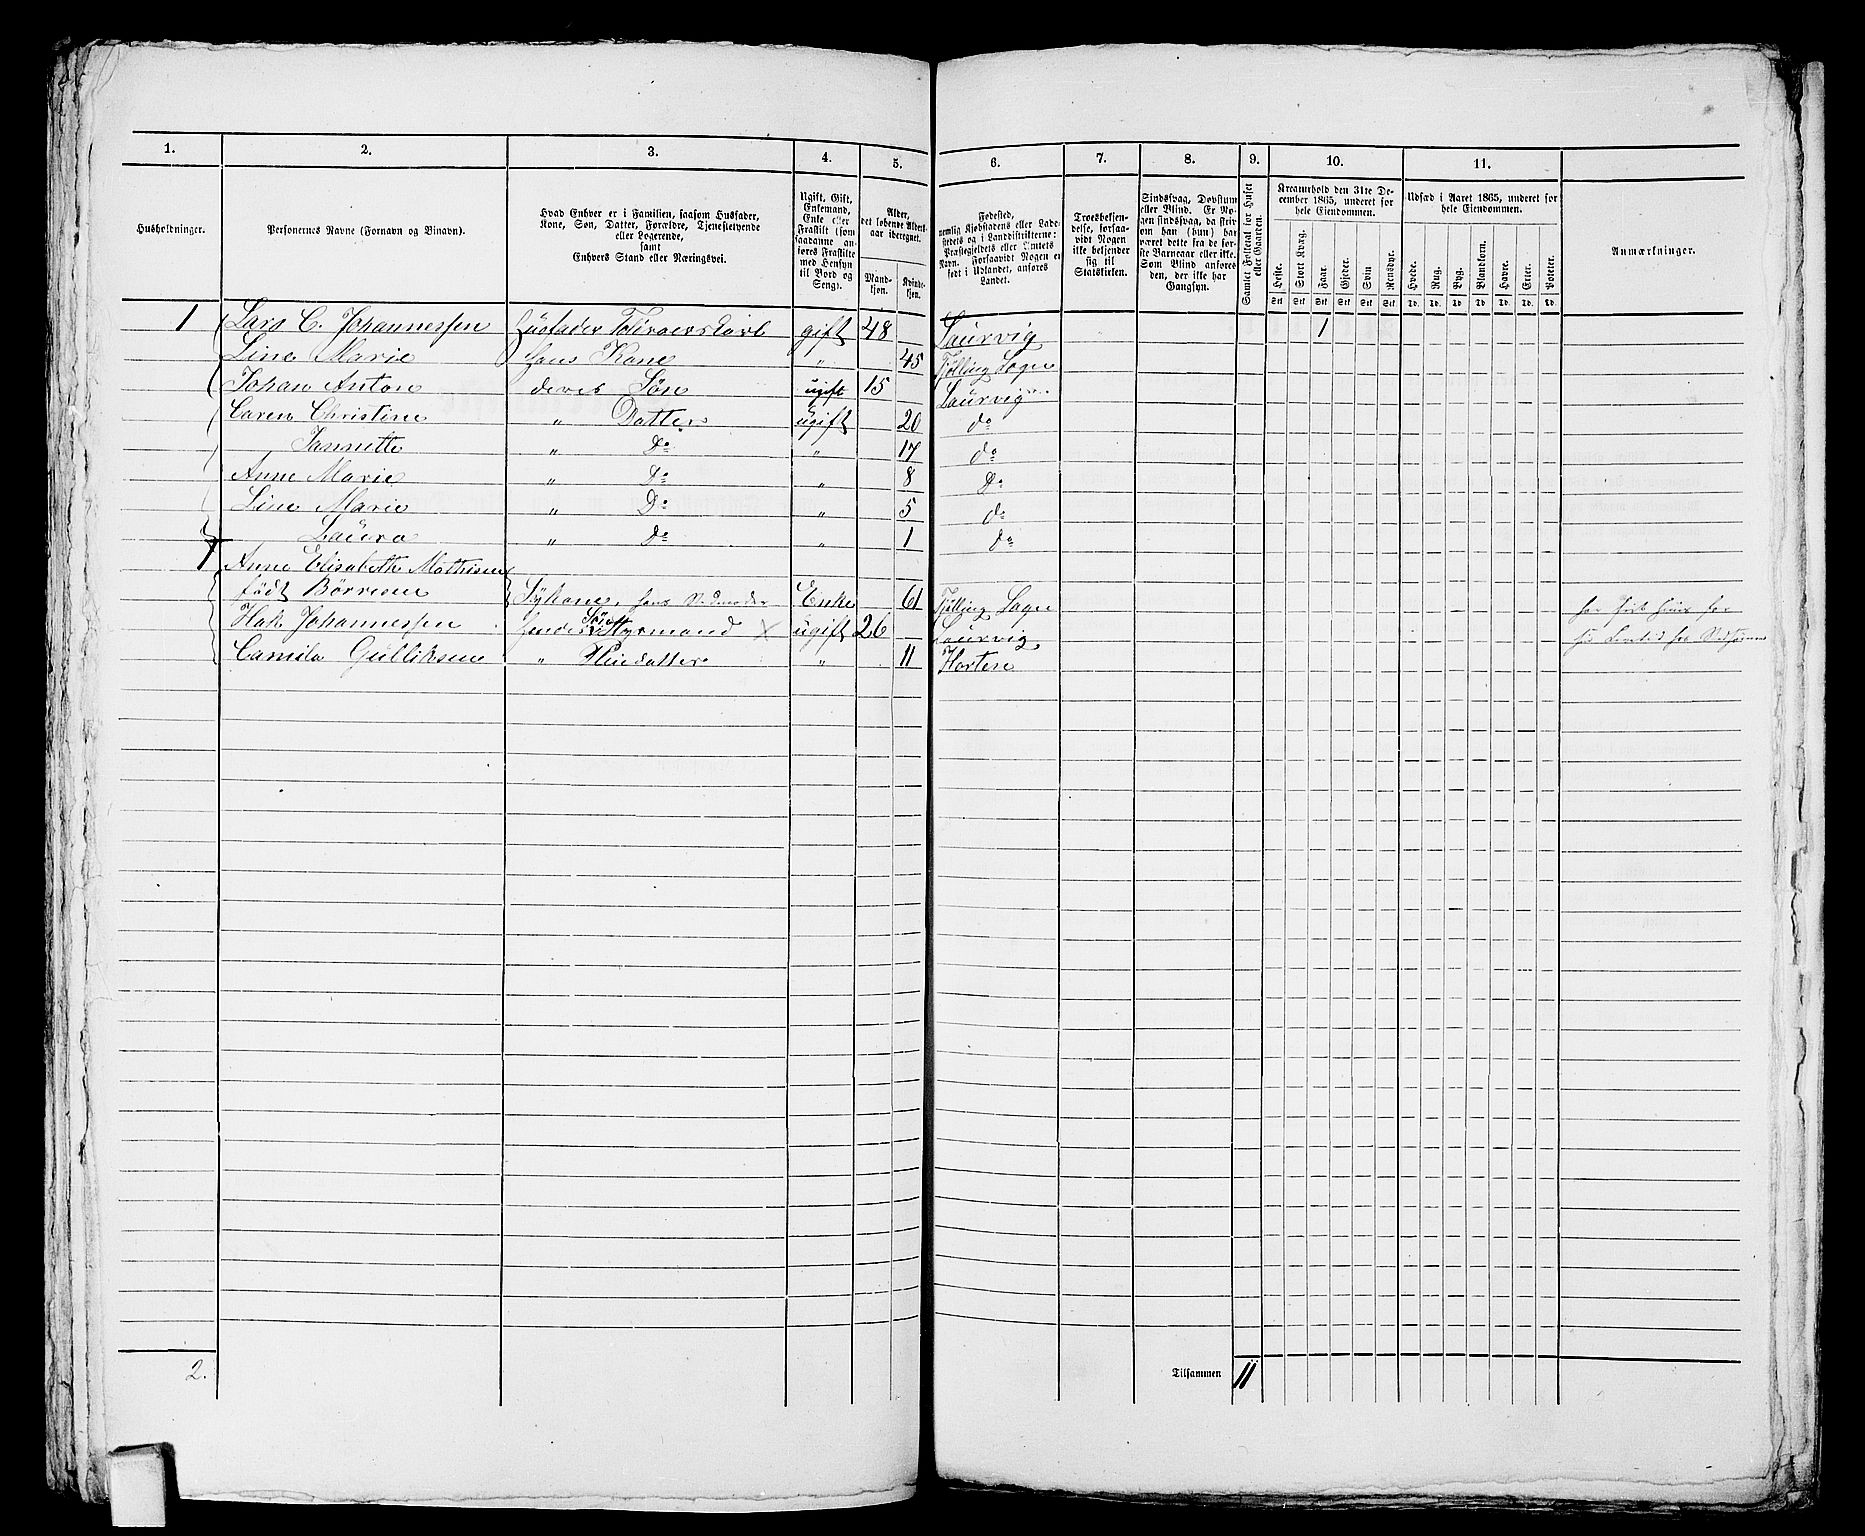 1. 2. 3. 4. 5. 6. 7. 8. 9. 10. 11.
Husholdninger.
Personernes Navne (Fornavn og Binavn).
Hvad Enhver er i Familien, saasom Husfader,
Kone, Søn, Datter, Forældre, Tjenestetyende
eller Logerende,
samt
Enhvers Stand eller Næringsvei.
Ugift, Gift,
Enkemand,
Enke eller
Fraskilt (som
saadanne an-
føres Fraskilte
med Hensyn
til Bord og
Seng).
Alder,
det løbende Alders-
aar iberegnet.
Mand-
kjøn.
Kvinde-
kjøn.
Fødested,
nemlig Kjøbstadens eller Lade-
stedets og i Landdistrikterne:
Præstegjeldets eller Amtets
Navn. Forsaavidt Nogen er
født i Udlandet, anføres
Landet.
Troesbekjen-
delse, forsaa-
vidt Nogen
ikke bekjender
sig til
Statskirken.
Sindssvag, Døvstum
eller Blind. Er No-
gen sindssvag, da skriv
om han (hun) har
været dette fra de før-
ste Barneaar eller ikke.
Som Blind anføres
den, der ikke har
Gangsyn.
Samlet Folketal for Huset
eller Gaarden.
Kreaturhold den 31te De-
cember 1865, underet for
hele Eiendommen.
Heste. Stort Kvæg. Faar. Gjeder. Svin Rensdyr.
Stk Stk Stk Stk Stk Stk
Udsæd i Aaret 1865, underet for
hele Eiendommen.
Hvede. Rug. Byg. Blandkorn. Havre. Erter. Poteter.
Td. Td. Td. Td. Td. Td. Td.
Anmærkninger.
1 Lars C. Johannessen Husfader gift 48 Laurvig 1
Line Marie Hans Kone " 45 Tjølling Sogn
Johan Anton deres Søn ugift 15 Laurvig
Caren Christine " Datter ugift 20 do
Jannette " Do " 17 do
Anne Marie " Do " 8 Do
Line Marie " Do " 5 do
Laura " do " 1 do
1 Anne Elisabeth Mathisen
født Børresen hans Enke 61 Tjølling Sogn
Johannessen Søn Styrmand ugift 26 Laurvig
Camila Gulliksen " Pleiedatter " 11 Horten
2.
Tilsammen 11